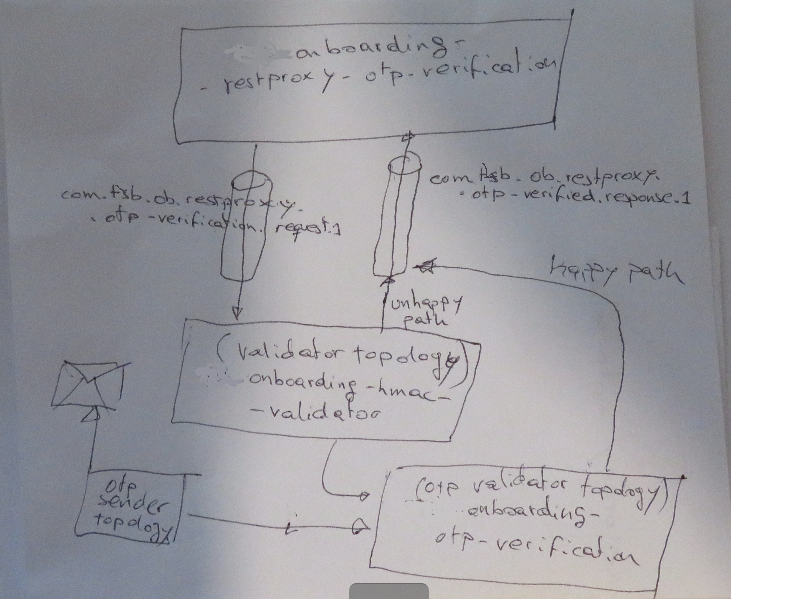 onboarding-
- restproxy - otp-verification
com.fsb.ob.restproxy.
. otp-verification. request.1
com.fsb. ob. restproxy.
. otp-verified.response.1
happy path
unhappy
path
(validator topology)
onboarding-hmac-
-validator
otp
sender
topology
(otp validator topology)
onboarding-
otp-verification